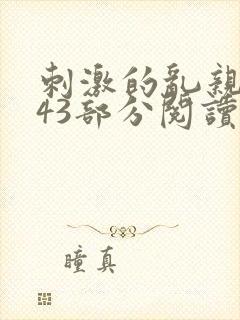 刺激的亂親
43部分閱讀
瞳真